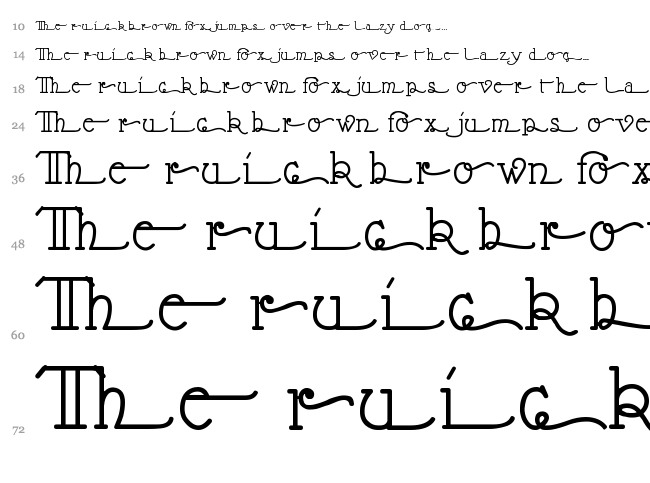 10 The ruick brown fox jumps over the lazy dog....
14 The ruick brown fox jumps over the lazy dog....
18 The ruick brown fox jumps over the la
24 The ruick brown fox jumps ove
36 The ruick brown fox
48 The ruick bro
60 The ruick b
72 The ruick